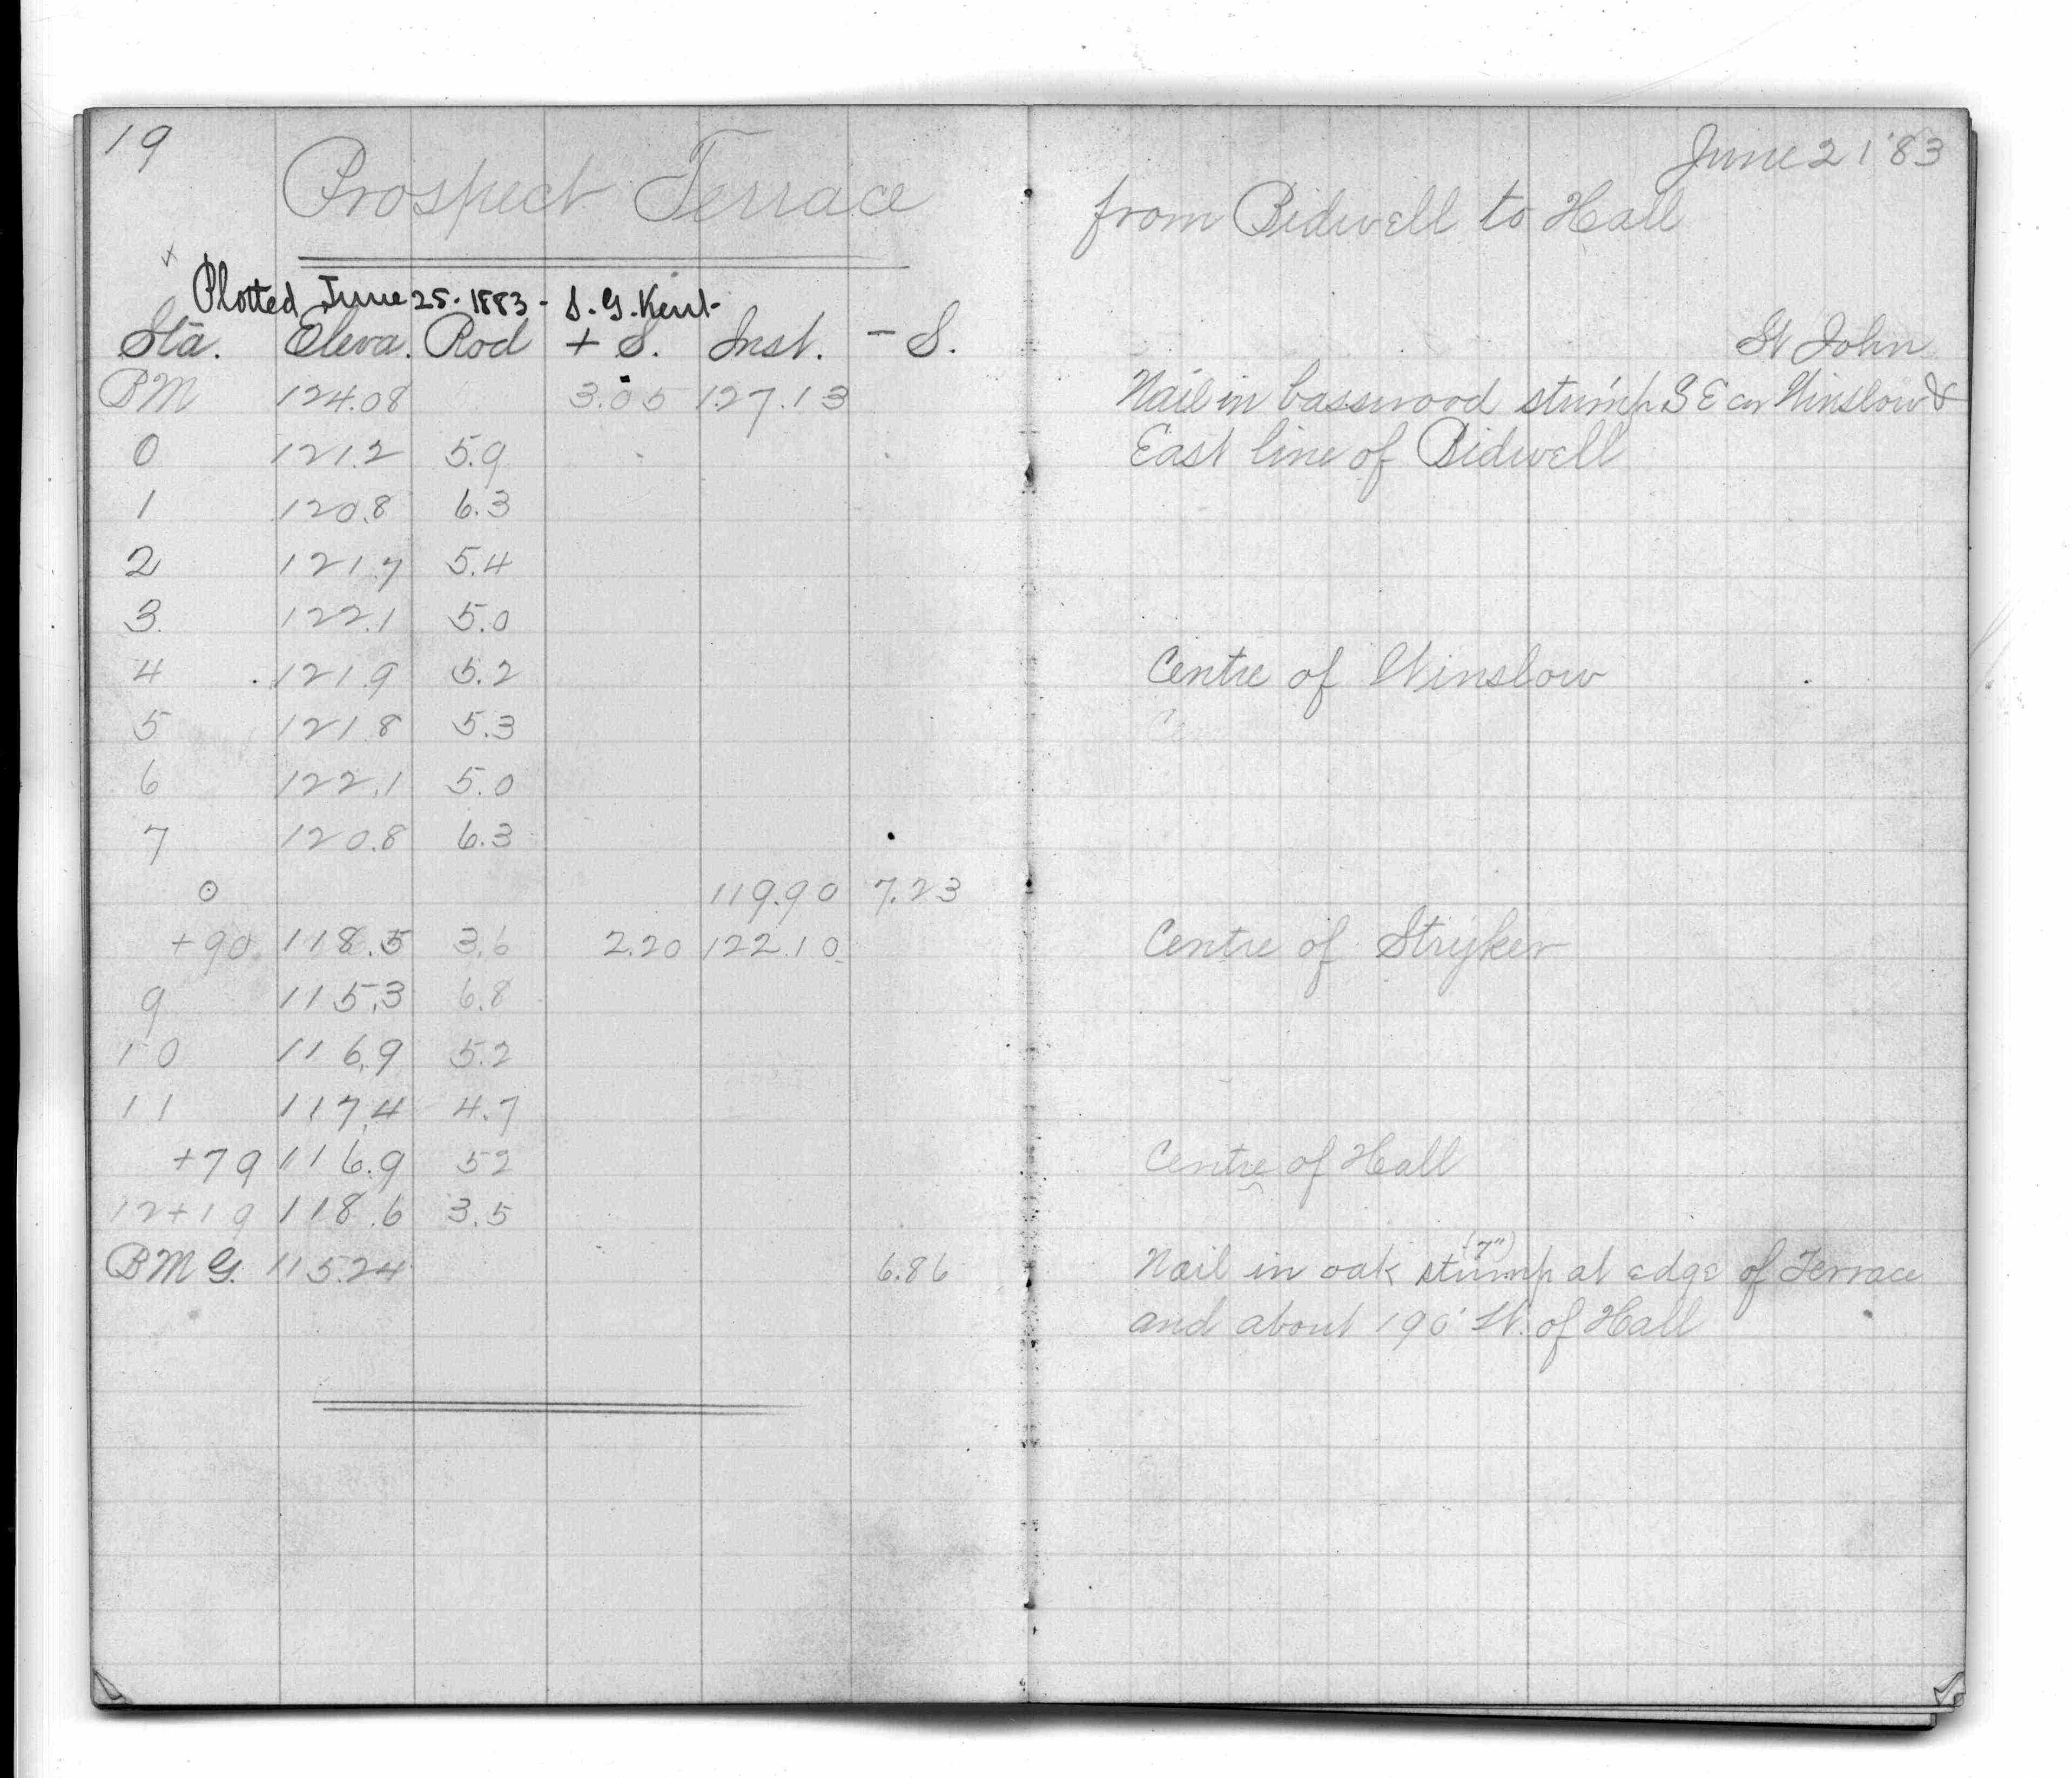 19
Prospect Terrace
Plotted June 25. 1883 - S. G. Kent
Sta. Eleva. Rod + S. Inst. - S.
BM 124.08 3.05 127.13
0 121.2 5.9
1 120.8 6.3
2 121.7 5.4
3 122.1 5.0
4 121.9 5.2
5 121.8 5.3
6 122.1 5.0
7 120.8 6.3
⊙ 119.90 7.23
+90 118.5 3.6 2.20 122.10
9 115.3 6.8
10 116.9 5.2
11 117.4 4.7
+79 116.9 52
12+19 118.6 3.5
BM G. 115.24 6.86
June 21 '83
from Bidwell to Hall
St John
Nail in basswood stump S E cor Winslow &
East line of Bidwell
Centre of Winslow
Centre of Stryker
Centre of Hall
(7")
Nail in oak stump at edge of Terrace
and about 190' W. of Hall